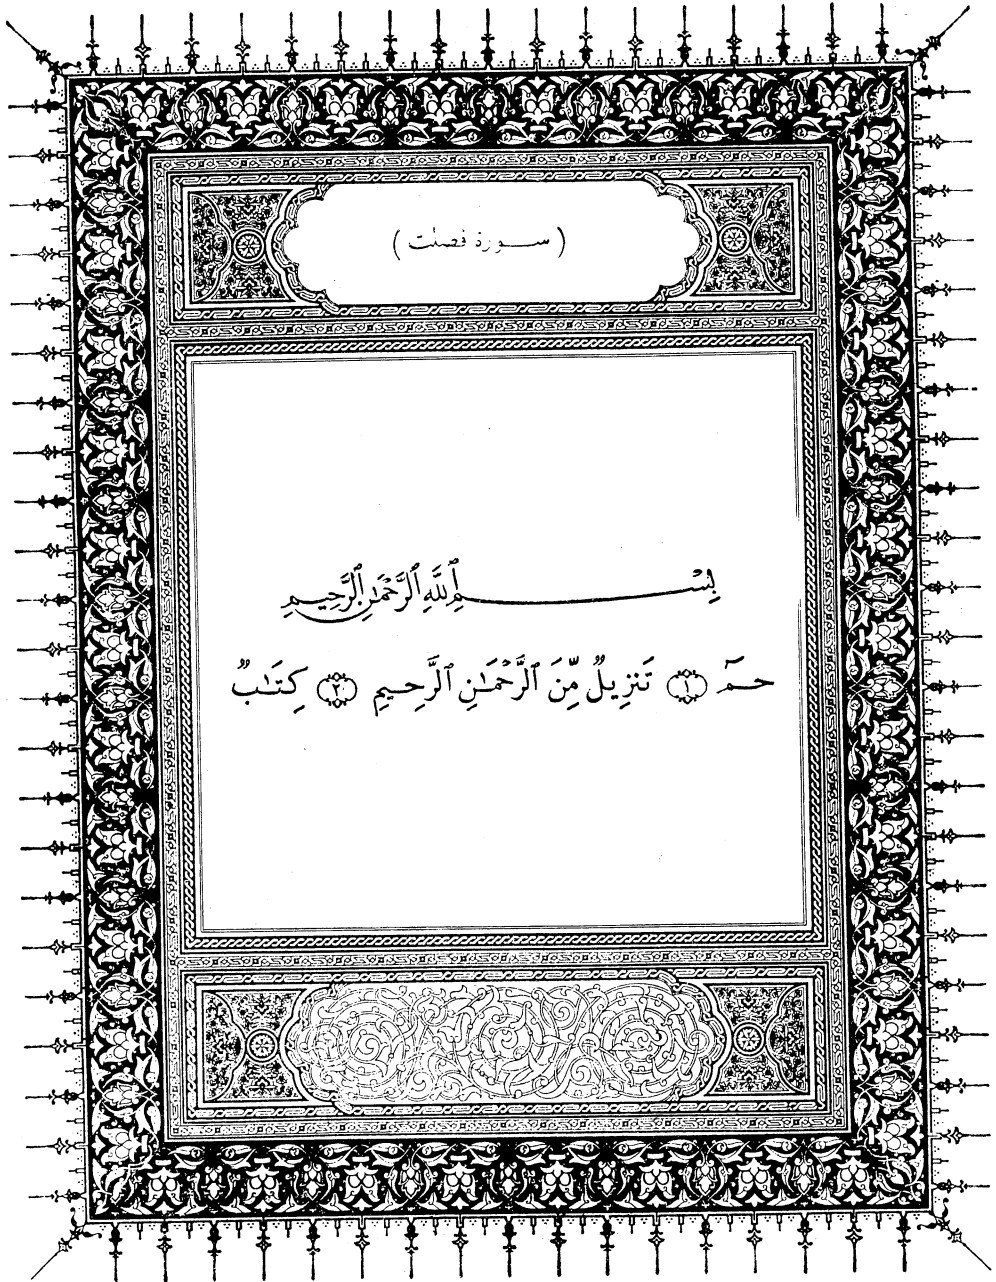 ( سورة فصلت )
بِسْمِ ٱللَّهِ ٱلرَّحْمَٰنِ ٱلرَّحِيمِ
حمٓ ١ تَنزِيلٌ مِّنَ ٱلرَّحْمَٰنِ ٱلرَّحِيمِ ٢ كِتَٰبٌ